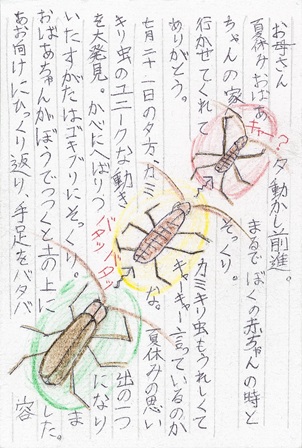 お母さん
夏休みおばあ
ちゃんの家
行かせてくれて
ありがとう。
七月二十一日の夕方、カミ
キリ虫のユニークな動き
を大発見。かべにへばりつ
いたすがたはゴキブリにそっくり。
おばあちゃんがぼうでつっくと土の上に
あお向けにひっくり返り、手足をバタバ
タ動かし前進。
まるでぼくの赤ちゃんの時と
そっくり。
カミキリ虫もうれしくて
キャーキャー言っているのか
な。夏休みの思い
出の一つ
になり
ま
した。
容